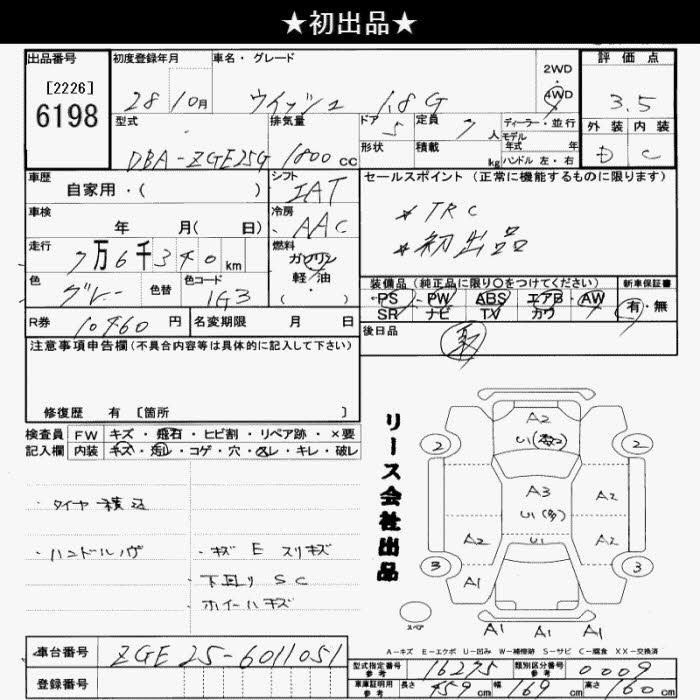 ★初出品★
出品番号 初度登録年月 車名・グレード 2WD・4WD 評価点
[2226]
6198 28 10月 ウイッシュ 1.8G 3.5
型式 排気量 ドア 定員 ディーラー・並行 外装 内装
DBA-ZGE25G 1800cc 5 7人 モデル年式 年 D C
形状 積載 kg ハンドル 左・右
車歴 シフト セールスポイント(正常に機能するものに限ります)
自家用・( ) IAT
車検 冷房 *TRC
年 月( 日) AAC *初出品
走行 燃料
7万6千340km ガソリン・軽油・( )
色 色替 色コード 装備品(純正品に限り○をつけてください) 新車保証書
グレー 1G3 PS・PW・ABS・エアB・AW 有・無
SR ナビ TV カワ
R券 10460円 名変期限 月 日 後日品
注意事項申告欄(不具合内容等は具体的に記入して下さい)
修復歴 有 [箇所 ]
検査員 FW キズ・飛石・ヒビ割・リペア跡・×要
記入欄 内装 キズ・汚レ・コゲ・穴・スレ・キレ・破レ
リース会社出品
・タイヤ積込
・ハンドルハゲ ・キズ E スリキズ
下回り SC
ホイールキズ
A2
2 U1 2
A3
A2 U1(多) A2
A2 U1 A2
3 3
A1 A1
スペア
A1 A1 A1
A-キズ E-エクボ U-凹み W-補修跡 S-サビ C-腐食 XX-交換済
車台番号 ZGE25-6011051
型式指定番号 参考 16275 類別区分番号 参考 0009
登録番号 車庫証明用 参考 長さ 459cm 幅 169cm 高さ 160cm